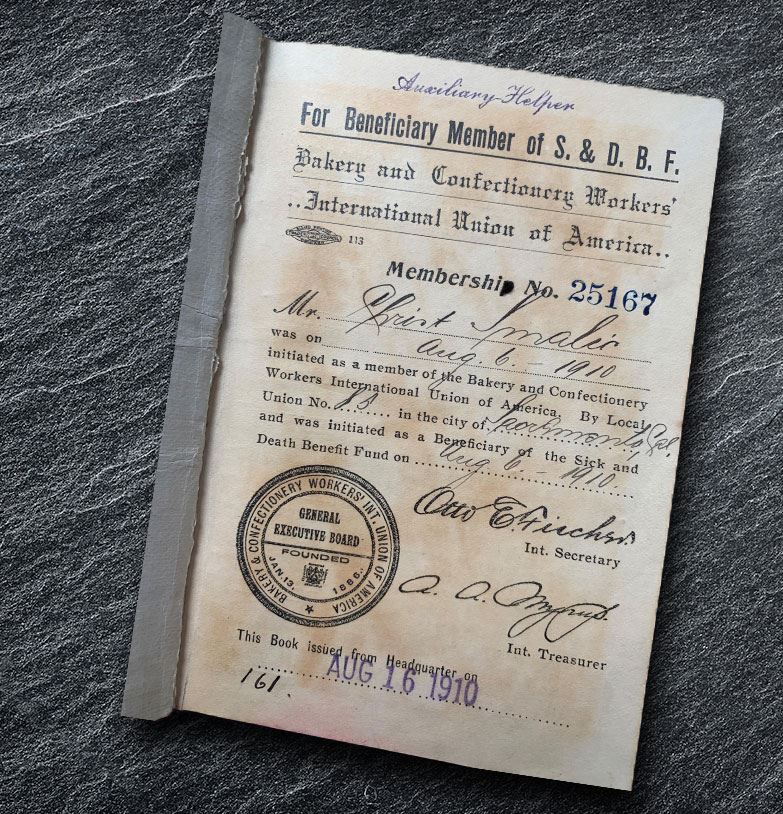 Auxiliary-Helper
For Beneficiary Member of S. & D. B. F.
Bakery and Confectionery Workers'
..International Union of America..
113
Membership No. 25167
Mr. Christ
was on Aug. 6 - 1910
initiated as a member of the Bakery and Confectionery
Workers International Union of America. By Local
Union No. in the city of Sacramento, Cal.
and was initiated as a Beneficiary of the Sick and
Death Benefit Fund on Aug 6 - 1910
BAKERY & CONFECTIONERY WORKERS' INT. UNION OF AMERICA
GENERAL
EXECUTIVE BOARD
FOUNDED
JAN. 13, 1886.
Otto E. Fischer.
Int. Secretary
A. A.
Int. Treasurer
This Book issued from Headquarter on
AUG 16 1910
161.